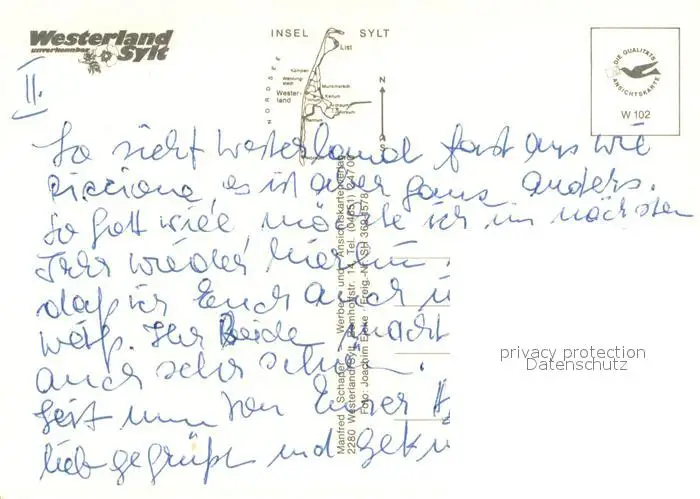 Westerland
unverkennbar Sylt
INSEL SYLT
NORDSEE
List
Kampen
Wenning-
stedt
Munkmarsch
Wester-
land
Keitum
Tinnum
Archsum
Morsum
Rantum
N
S
DIE QUALITÄTS
ANSICHTSKARTE
W 102
II.
So sieht Westerland fast aus wie
Riccione, es ist aber ganz anders.
So Gott will, möchte ich im nächsten
Jahr wieder hierhin
daß ich Euch auch i
weiß. Ihr Beide macht
auch sehr schön.
Seit nun von Eurer
lieb gegrüßt und gekü
Manfred Schaper · Werbe- und Ansichtskartenverlag
2280 Westerland/Sylt, Bomhoffstr. 14, Tel. (04651)
Foto: Joachim · Freig.-Nr. SH
privacy protection
Datenschutz